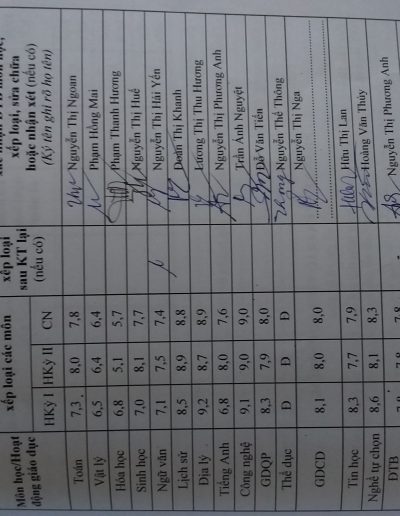 Môn học/Hoạt động giáo dục | xếp loại các môn | xếp loại
HKỳ I | HKỳ II | CN | sau KT lại (nếu có) | xếp loại, sửa chữa hoặc nhận xét (nếu có) (Ký tên ghi rõ họ tên)
Toán 7,3 8,0 7,8 Nguyễn Thị Ngoan
Vật lý 6,5 6,4 6,4 Phạm Hồng Mai
Hóa học 6,8 5,1 5,7 Phạm Thanh Hương
Sinh học 7,0 8,1 7,7 Nguyễn Thị Huế
Ngữ văn 7,1 7,5 7,4 Nguyễn Thị Hải Yến
Lịch sử 8,5 8,9 8,8 Doãn Thị Khanh
Địa lý 9,2 8,7 8,9 Lương Thị Thu Hương
Tiếng Anh 6,8 8,0 7,6 Nguyễn Thị Phương Anh
Công nghệ 9,1 9,0 9,0 Trần Anh Nguyệt
GDQP 8,3 7,9 8,0 Văn Tiến
Thể dục Đ Đ Đ Nguyễn Thế Thông
GDCD 8,1 8,0 8,0 Nguyễn Thị Nga
Tin học 8,3 7,7 7,9 Hữu Thị Lan
Nghề tự chọn 8,6 8,1 8,3 Hoàng Văn Thủy
ĐTB 7,8 Nguyễn Thị Phương Anh